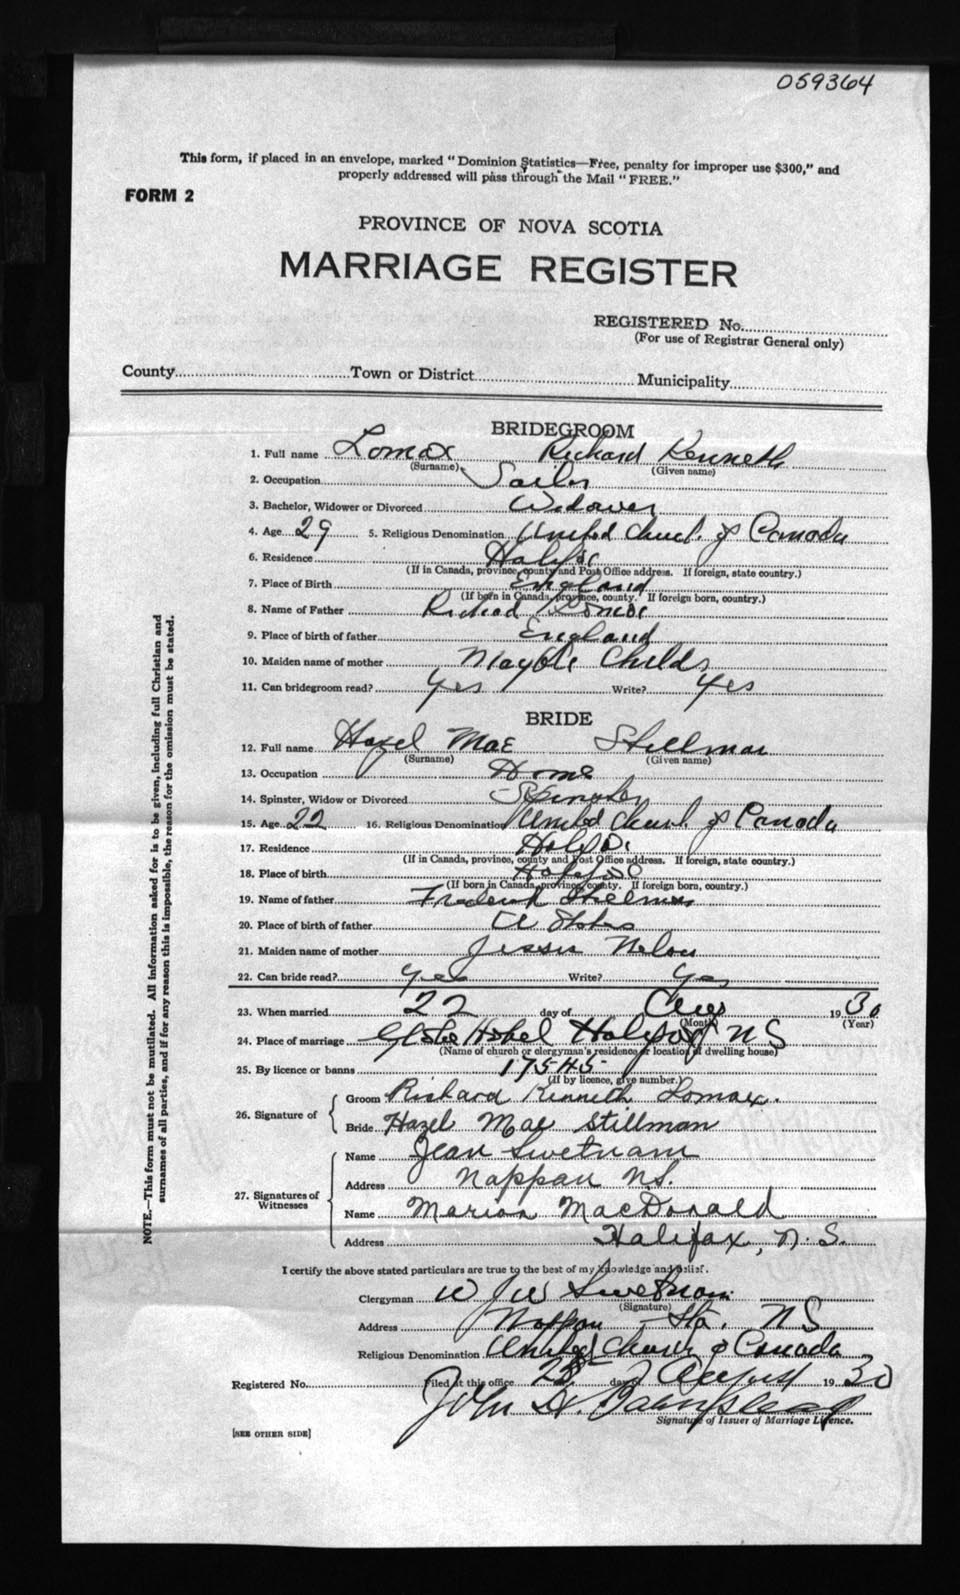 059364
This form, if placed in an envelope, marked "Dominion Statistics—Free, penalty for improper use $300," and
properly addressed will pass through the Mail "FREE."
FORM 2
PROVINCE OF NOVA SCOTIA
MARRIAGE REGISTER
REGISTERED No.
(For use of Registrar General only)
County Town or District Municipality
BRIDEGROOM
1. Full name Lomax Richard Kenneth
(Surname) (Given name)
2. Occupation Sailor
3. Bachelor, Widower or Divorced Widower
4. Age 29 5. Religious Denomination United Church of Canada
6. Residence Halifax
(If in Canada, province, county and Post Office address. If foreign, state country.)
7. Place of Birth England
(If born in Canada, province, county. If foreign born, country.)
8. Name of Father Richard Lomax
9. Place of birth of father England
10. Maiden name of mother Childs
11. Can bridegroom read? Yes Write? Yes
BRIDE
12. Full name Hazel Mae Stillman
(Surname) (Given name)
13. Occupation Home
14. Spinster, Widow or Divorced Spinster
15. Age 22 16. Religious Denomination United Church of Canada
17. Residence Halifax
(If in Canada, province, county and Post Office address. If foreign, state country.)
18. Place of birth Halifax
(If born in Canada, province, county. If foreign born, country.)
19. Name of father Frederick Stillman
20. Place of birth of father U States
21. Maiden name of mother Jessie Nelson
22. Can bride read? Yes Write? Yes
23. When married 22 day of Aug 1930
(Month) (Year)
24. Place of marriage Hotel Halifax N S
(Name of church or clergyman's residence or location of dwelling house)
25. By licence or banns 17545
(If by licence, give number.)
26. Signature of
Groom Richard Kenneth Lomax.
Bride Hazel Mae Stillman
27. Signatures of Witnesses
Name Jean Swetnam
Address Nappan N.S.
Name Marion MacDonald
Address Halifax, N.S.
I certify the above stated particulars are true to the best of my knowledge and belief.
Clergyman W J W Swetnam
(Signature)
Address Nappan Sta. NS
Religious Denomination United Church of Canada
Registered No. Filed at this office day of August 1930
John
Signature of Issuer of Marriage Licence.
[SEE OTHER SIDE]
NOTE.—This form must not be mutilated. All information asked for is to be given, including full Christian and
surnames of all parties, and if for any reason this is impossible, the reason for the omission must be stated.